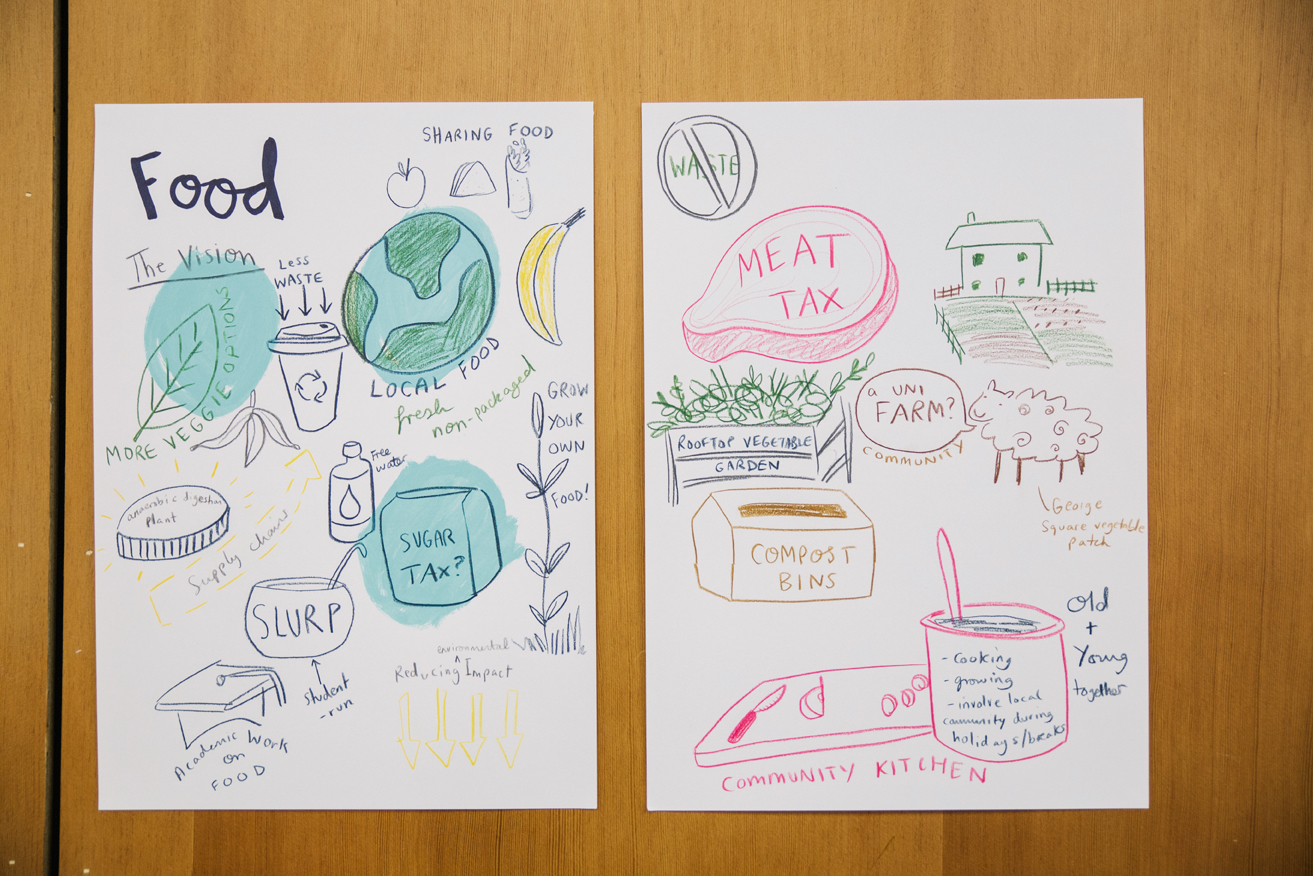 Food
SHARING FOOD
The Vision
LESS
WASTE
MORE VEGGIE OPTIONS
LOCAL FOOD
fresh
non-packaged
GROW
YOUR
OWN
FOOD!
Free
water
anaerobic digestion
plant
Supply chains
SUGAR
TAX?
SLURP
student
-run
environmental
Reducing ^ Impact
Academic Work
on
FOOD
WASTE
MEAT
TAX
a UNI
FARM?
COMMUNITY
ROOFTOP VEGETABLE
GARDEN
George
Square vegetable
patch
COMPOST
BINS
Old
+
Young
together
- Cooking
- growing
- involve local
community during
holidays/breaks
COMMUNITY KITCHEN